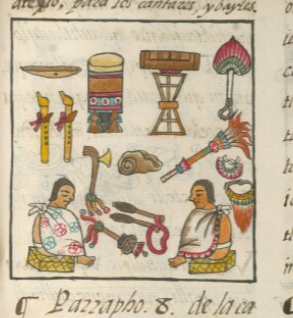 ateujo, para los cantares, y bayles.
¶ Parrapho. 8. de la ca